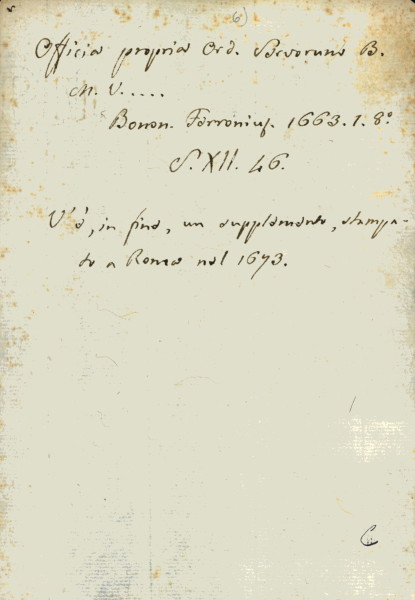 6)
Officia propria Ord. Servorum B.
M. V.....
Bonon. Ferronius. 1663. 1. 8º
S. XII. 46.
V'è, in fine, un supplemento, stampa-
to a Roma nel 1673.